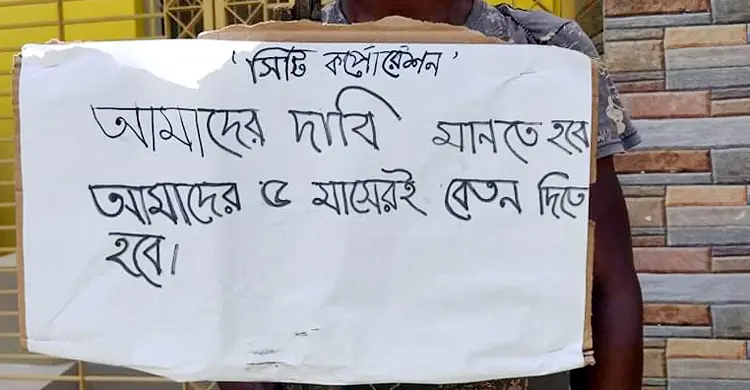 'সিটি কর্পোরেশন'
আমাদের দাবি মানতে হবে
আমাদের ৫ মাসেরই বেতন দিতে
হবে।